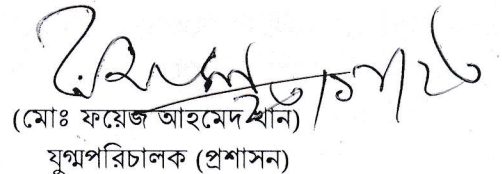 (মোঃ ফয়েজ আহমেদ খান)
যুগ্মপরিচালক (প্রশাসন)